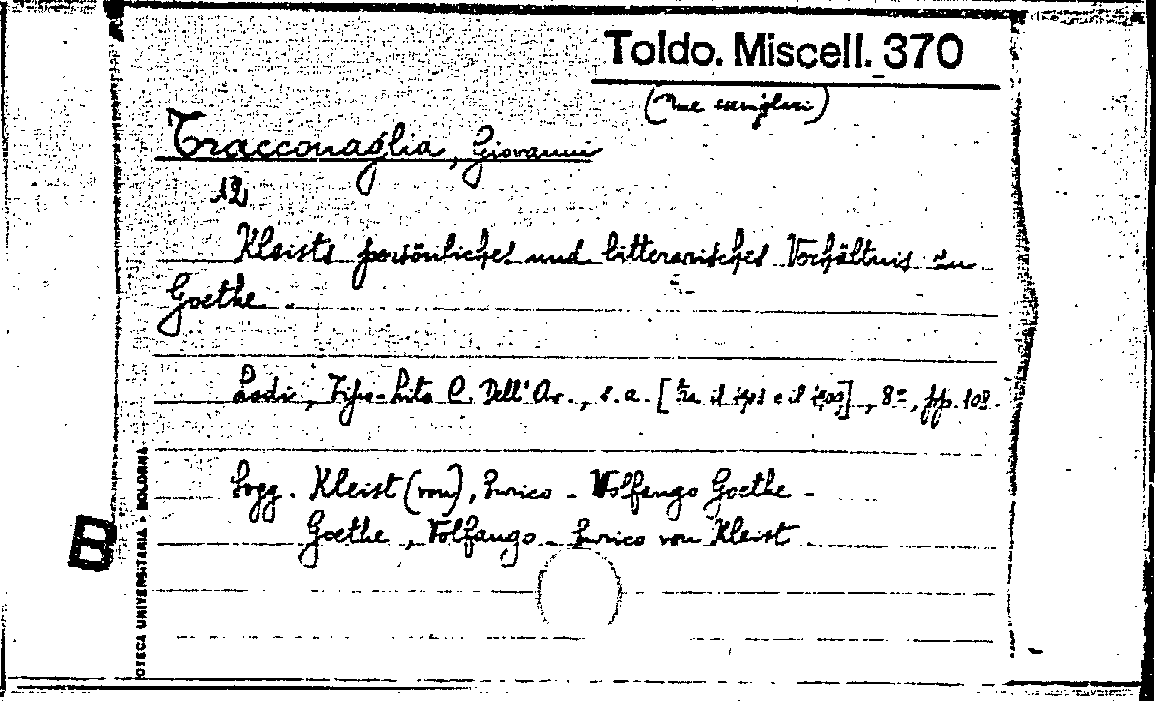 Toldo. Miscell. 370
(Due esemplari)
Tracconaglia, Giovanni
12
Kleists persönliches und litterarisches Verhältnis zu
Goethe.
Lodi, Tipo-Lito C. Dell'Av., s.a. [tra il 1901 e il], 8º, pp. 108.
Sogg. Kleist (von), Enrico - Volfango Goethe -
Goethe, Volfango - Enrico von Kleist
B
OTECA UNIVERSITARIA - BOLOGNA